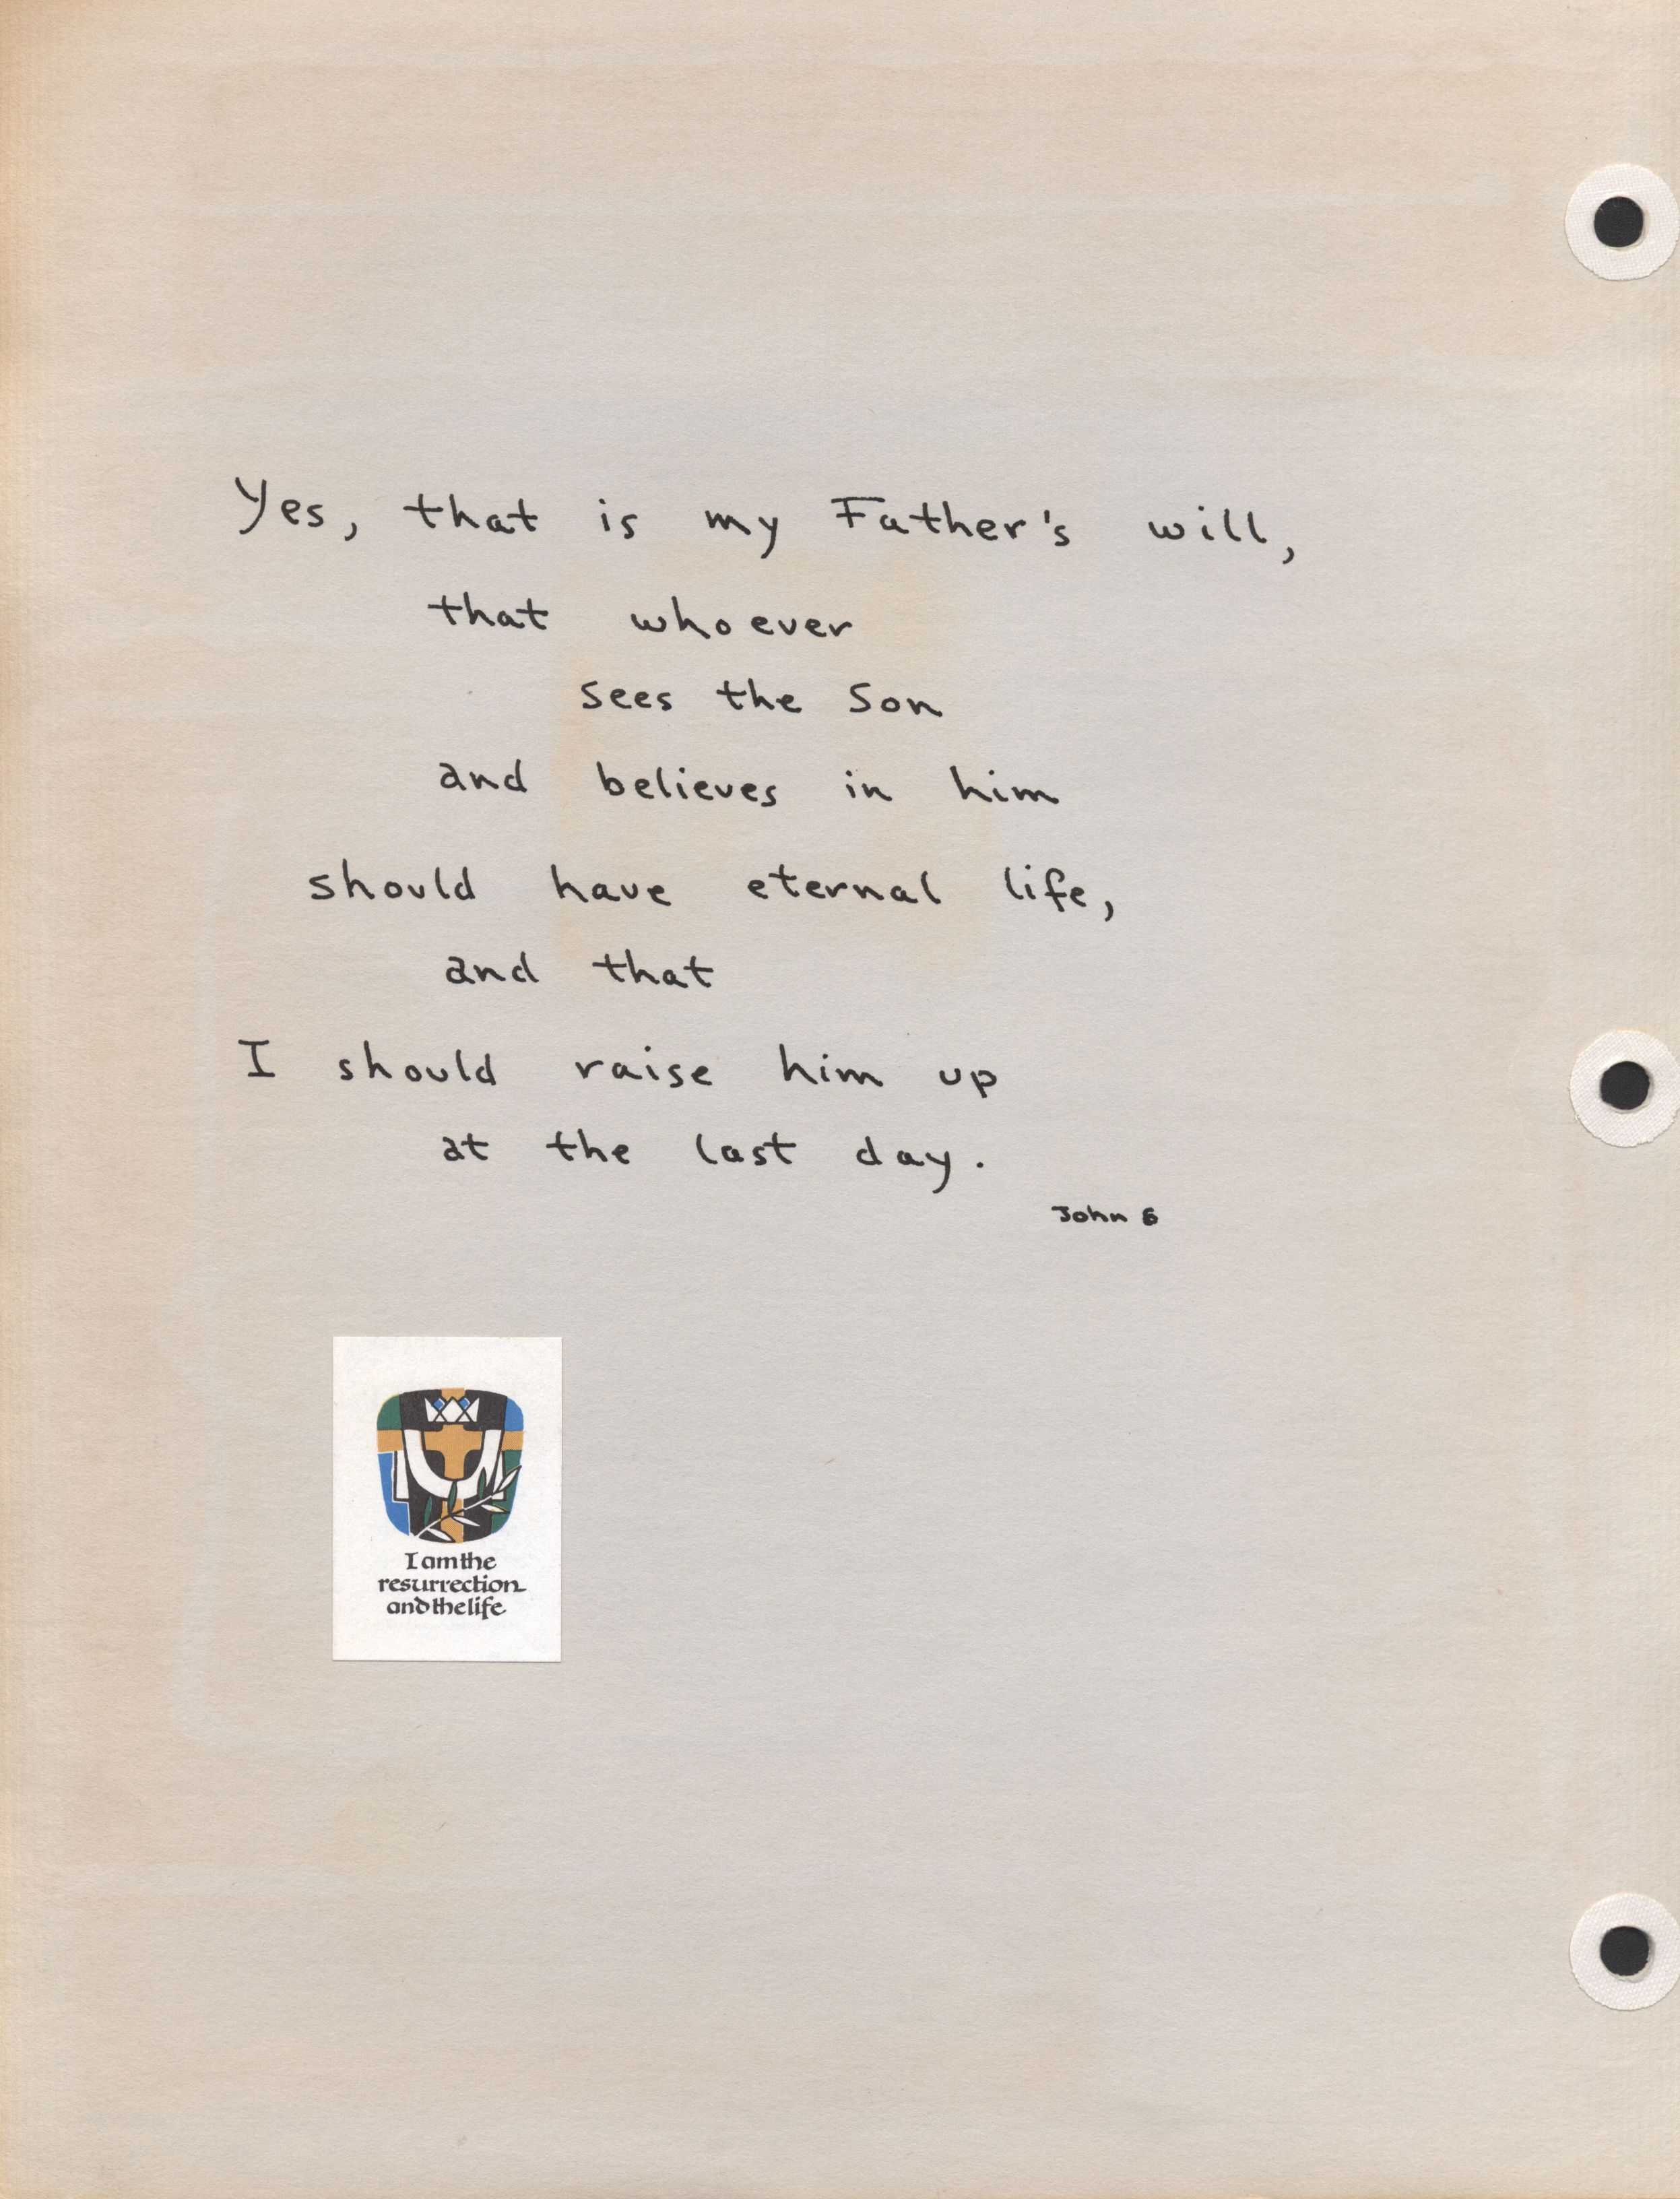 Yes, that is my Father's will,
that whoever
sees the Son
and believes in him
should have eternal life,
and that
I should raise him up
at the last day.
John 6
I am the
resurrection
and the life